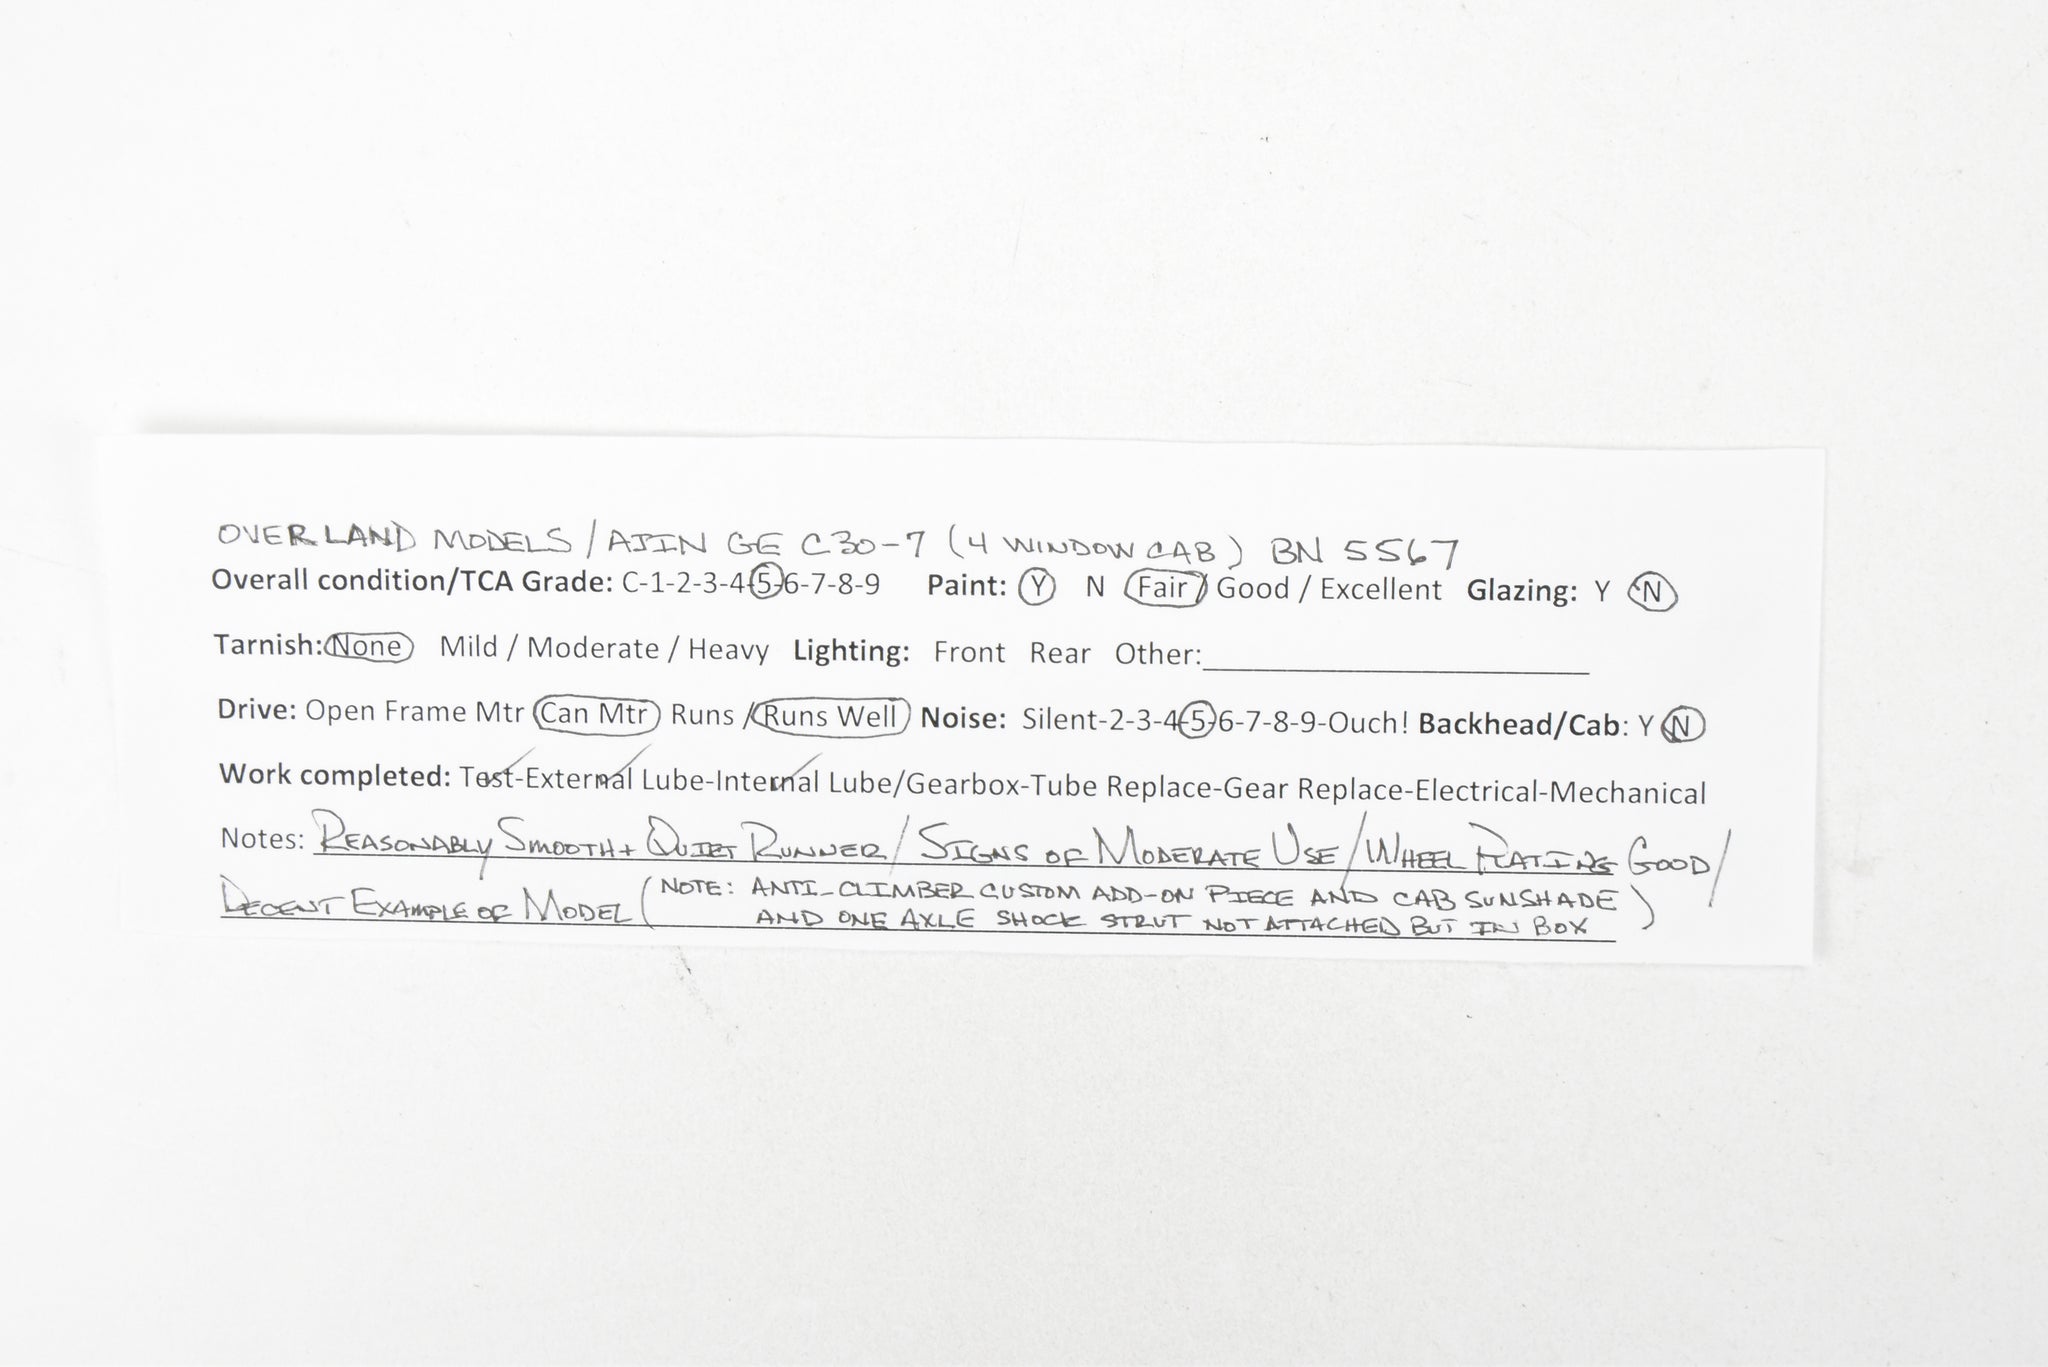 OVERLAND MODELS / AJIN GE C30-7 (4 WINDOW CAB) BN 5567
Overall condition/TCA Grade: C-1-2-3-4-5-6-7-8-9 Paint: Y N Fair / Good / Excellent Glazing: Y N
Tarnish: None Mild / Moderate / Heavy Lighting: Front Rear Other:
Drive: Open Frame Mtr Can Mtr Runs / Runs Well Noise: Silent-2-3-4-5-6-7-8-9-Ouch! Backhead/Cab: Y N
Work completed: Test-External Lube-Internal Lube/Gearbox-Tube Replace-Gear Replace-Electrical-Mechanical
Notes: REASONABLY SMOOTH + QUIET RUNNER / SIGNS OF MODERATE USE / WHEEL PLATING GOOD /
DECENT EXAMPLE OF MODEL (NOTE: ANTI-CLIMBER CUSTOM ADD-ON PIECE AND CAB SUNSHADE
AND ONE AXLE SHOCK STRUT NOT ATTACHED BUT IN BOX)